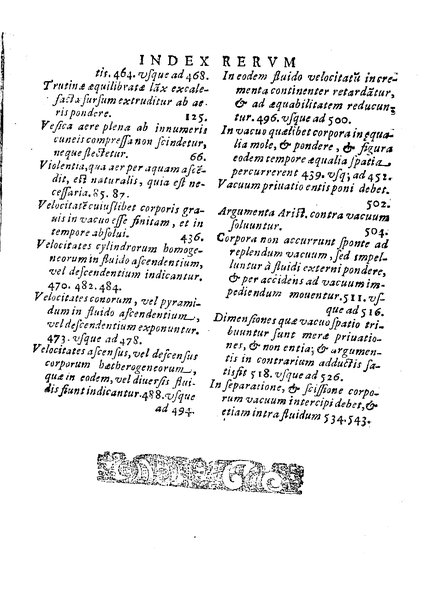 INDEX RERVM
tis. 464. vsque ad 468.
Trutinæ æquilibratæ lãx excale-
facta sursum extruditur ab ae-
ris pondere. 125.
Vesica aere plena ab innumeris
cuneis compressa non scindetur,
neque flectetur. 66.
Violentia, qua aer per aquam ascẽ-
dit, est naturalis, quia est ne-
cessaria. 85. 87.
Velocitatẽ cuiuslibet corporis gra-
uis in vacuo esse finitam, et in
tempore absolui. 436.
Velocitates cylindrorum homoge-
neorum in fluido ascendentium,
vel descendentium indicantur.
470. 482. 484.
Velocitates conorum, vel pyrami-
dum in fluido ascendentium,
vel descendentium exponuntur.
473. vsque ad 478.
Velocitates ascensus, vel descensus
corporum hætherogeneorum,
quæ in eodem, vel diuersis flui-
dis fiunt indicantur. 488. vsque
ad 494.
In eodem fluido velocitatũ incre-
menta continenter retardãtur,
& ad æquabilitatem reducun-
tur. 496. vsque ad 500.
In vacuo quælibet corpora inæqua-
lia mole, & pondere, & figura
eodem tempore æqualia spatia
percurrerent 439. vsq; ad 452.
Vacuum priuatio entis poni debet.
502.
Argumenta Arist. contra vacuum
soluuntur. 504.
Corpora non accurrunt sponte ad
replendum vacuum, sed impel-
luntur à fluidi externi pondere,
& per accidens ad vacuum im-
pediendum mouentur. 511. vs-
que ad 516.
Dimensiones quæ vacuo spatio tri-
buuntur sunt meræ priuatio-
nes, & non entia; & argumen-
tis in contrarium adductis sa-
tisfit 518. vsque ad 526.
In separatione, & scissione corpo-
rum vacuum intercipi debet, &
etiam intra fluidum 534. 543.